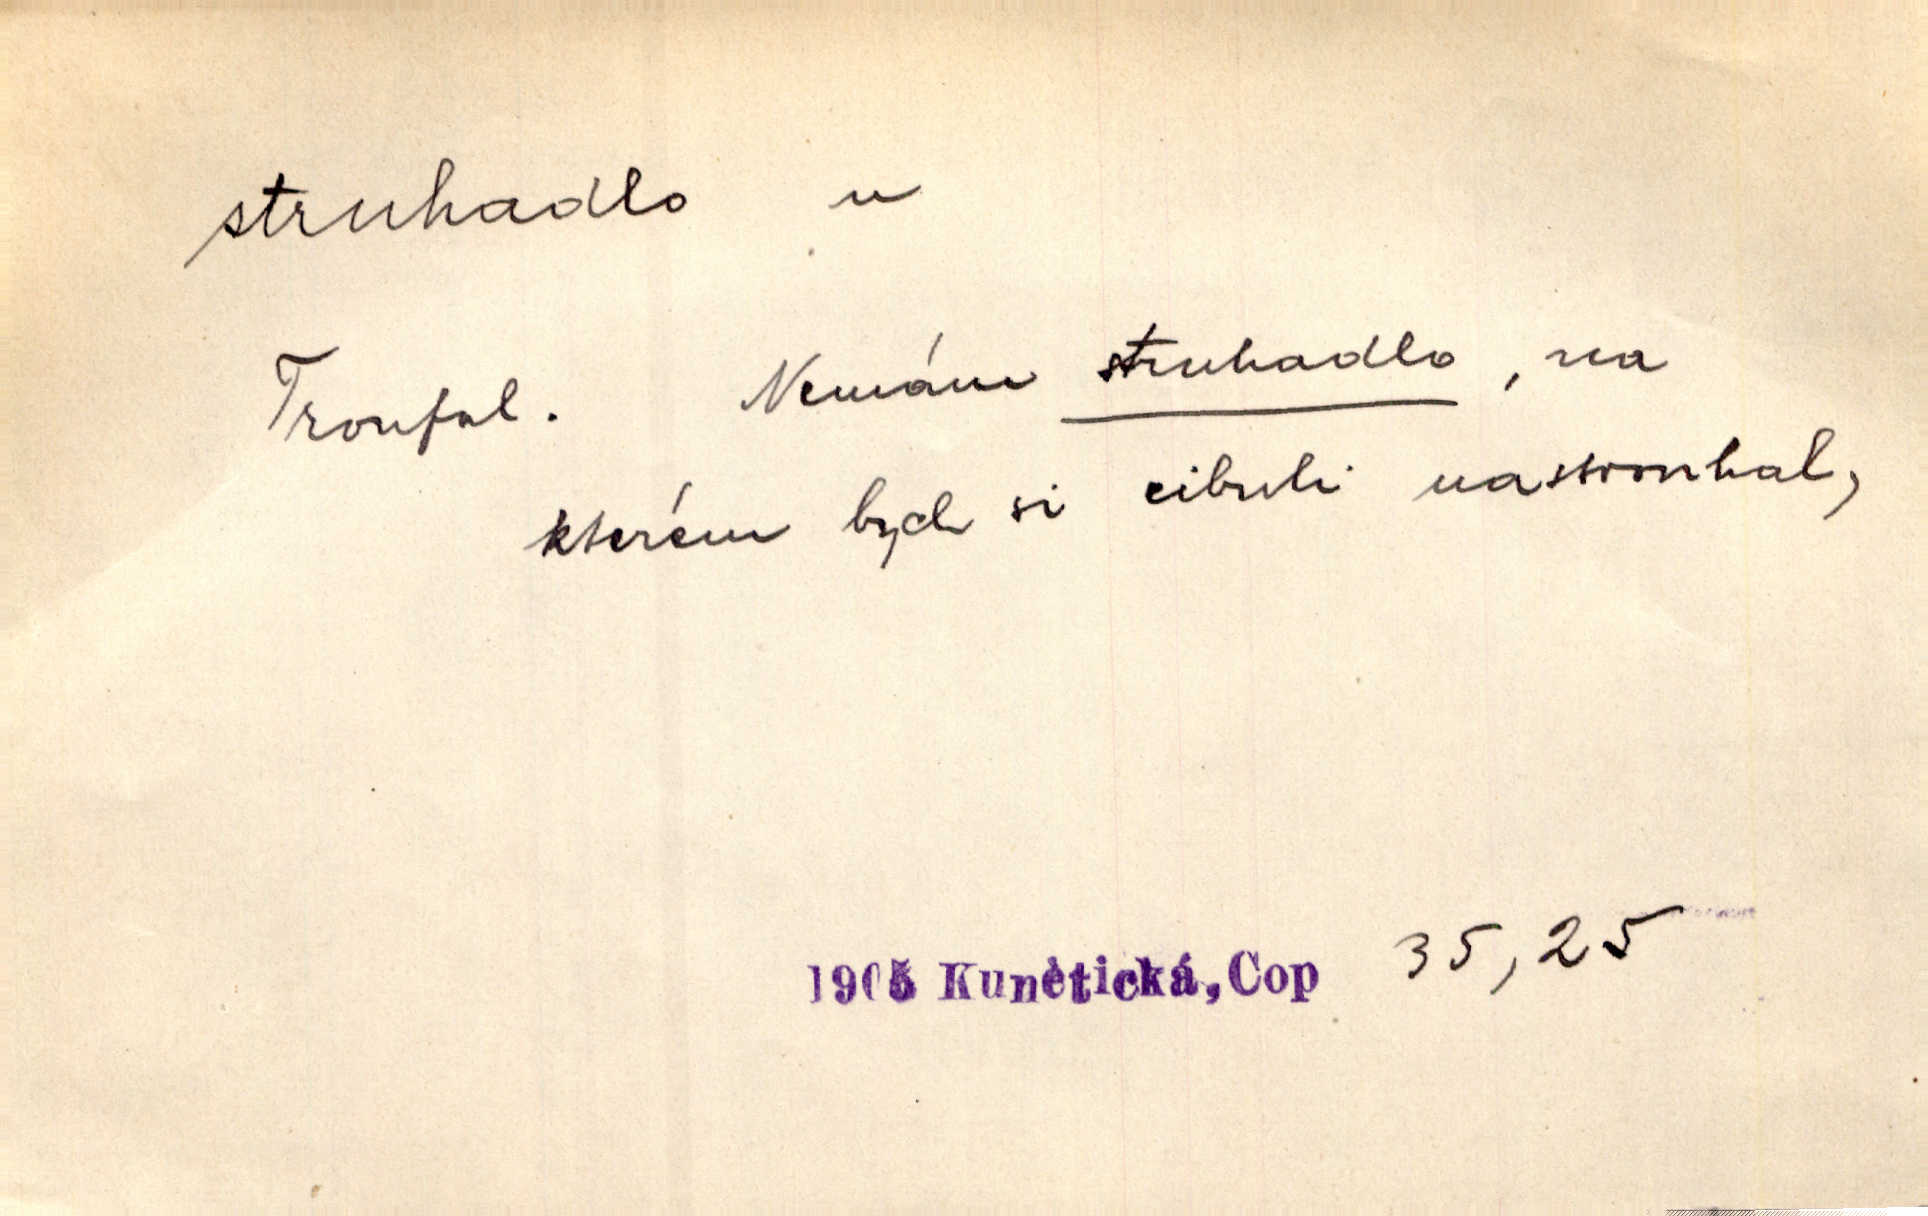 struhadlo n
Troufal. Nemám struhadlo, na
kterém bych si cibuli nastrouhal,
1905 Kunětická, Cop 35,25